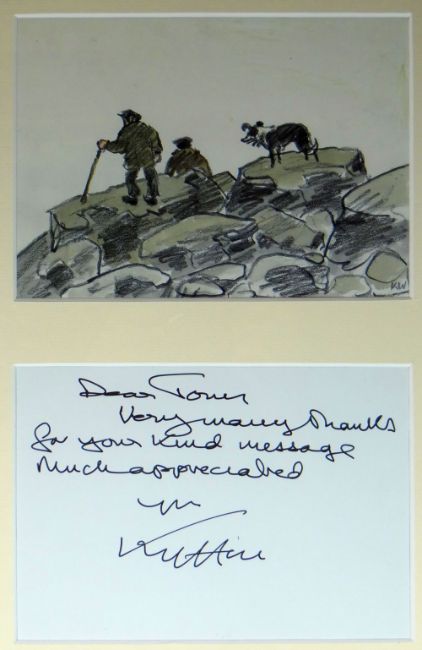 KW
Dear
Very many thanks
for your kind message
Much appreciated
Kyffin